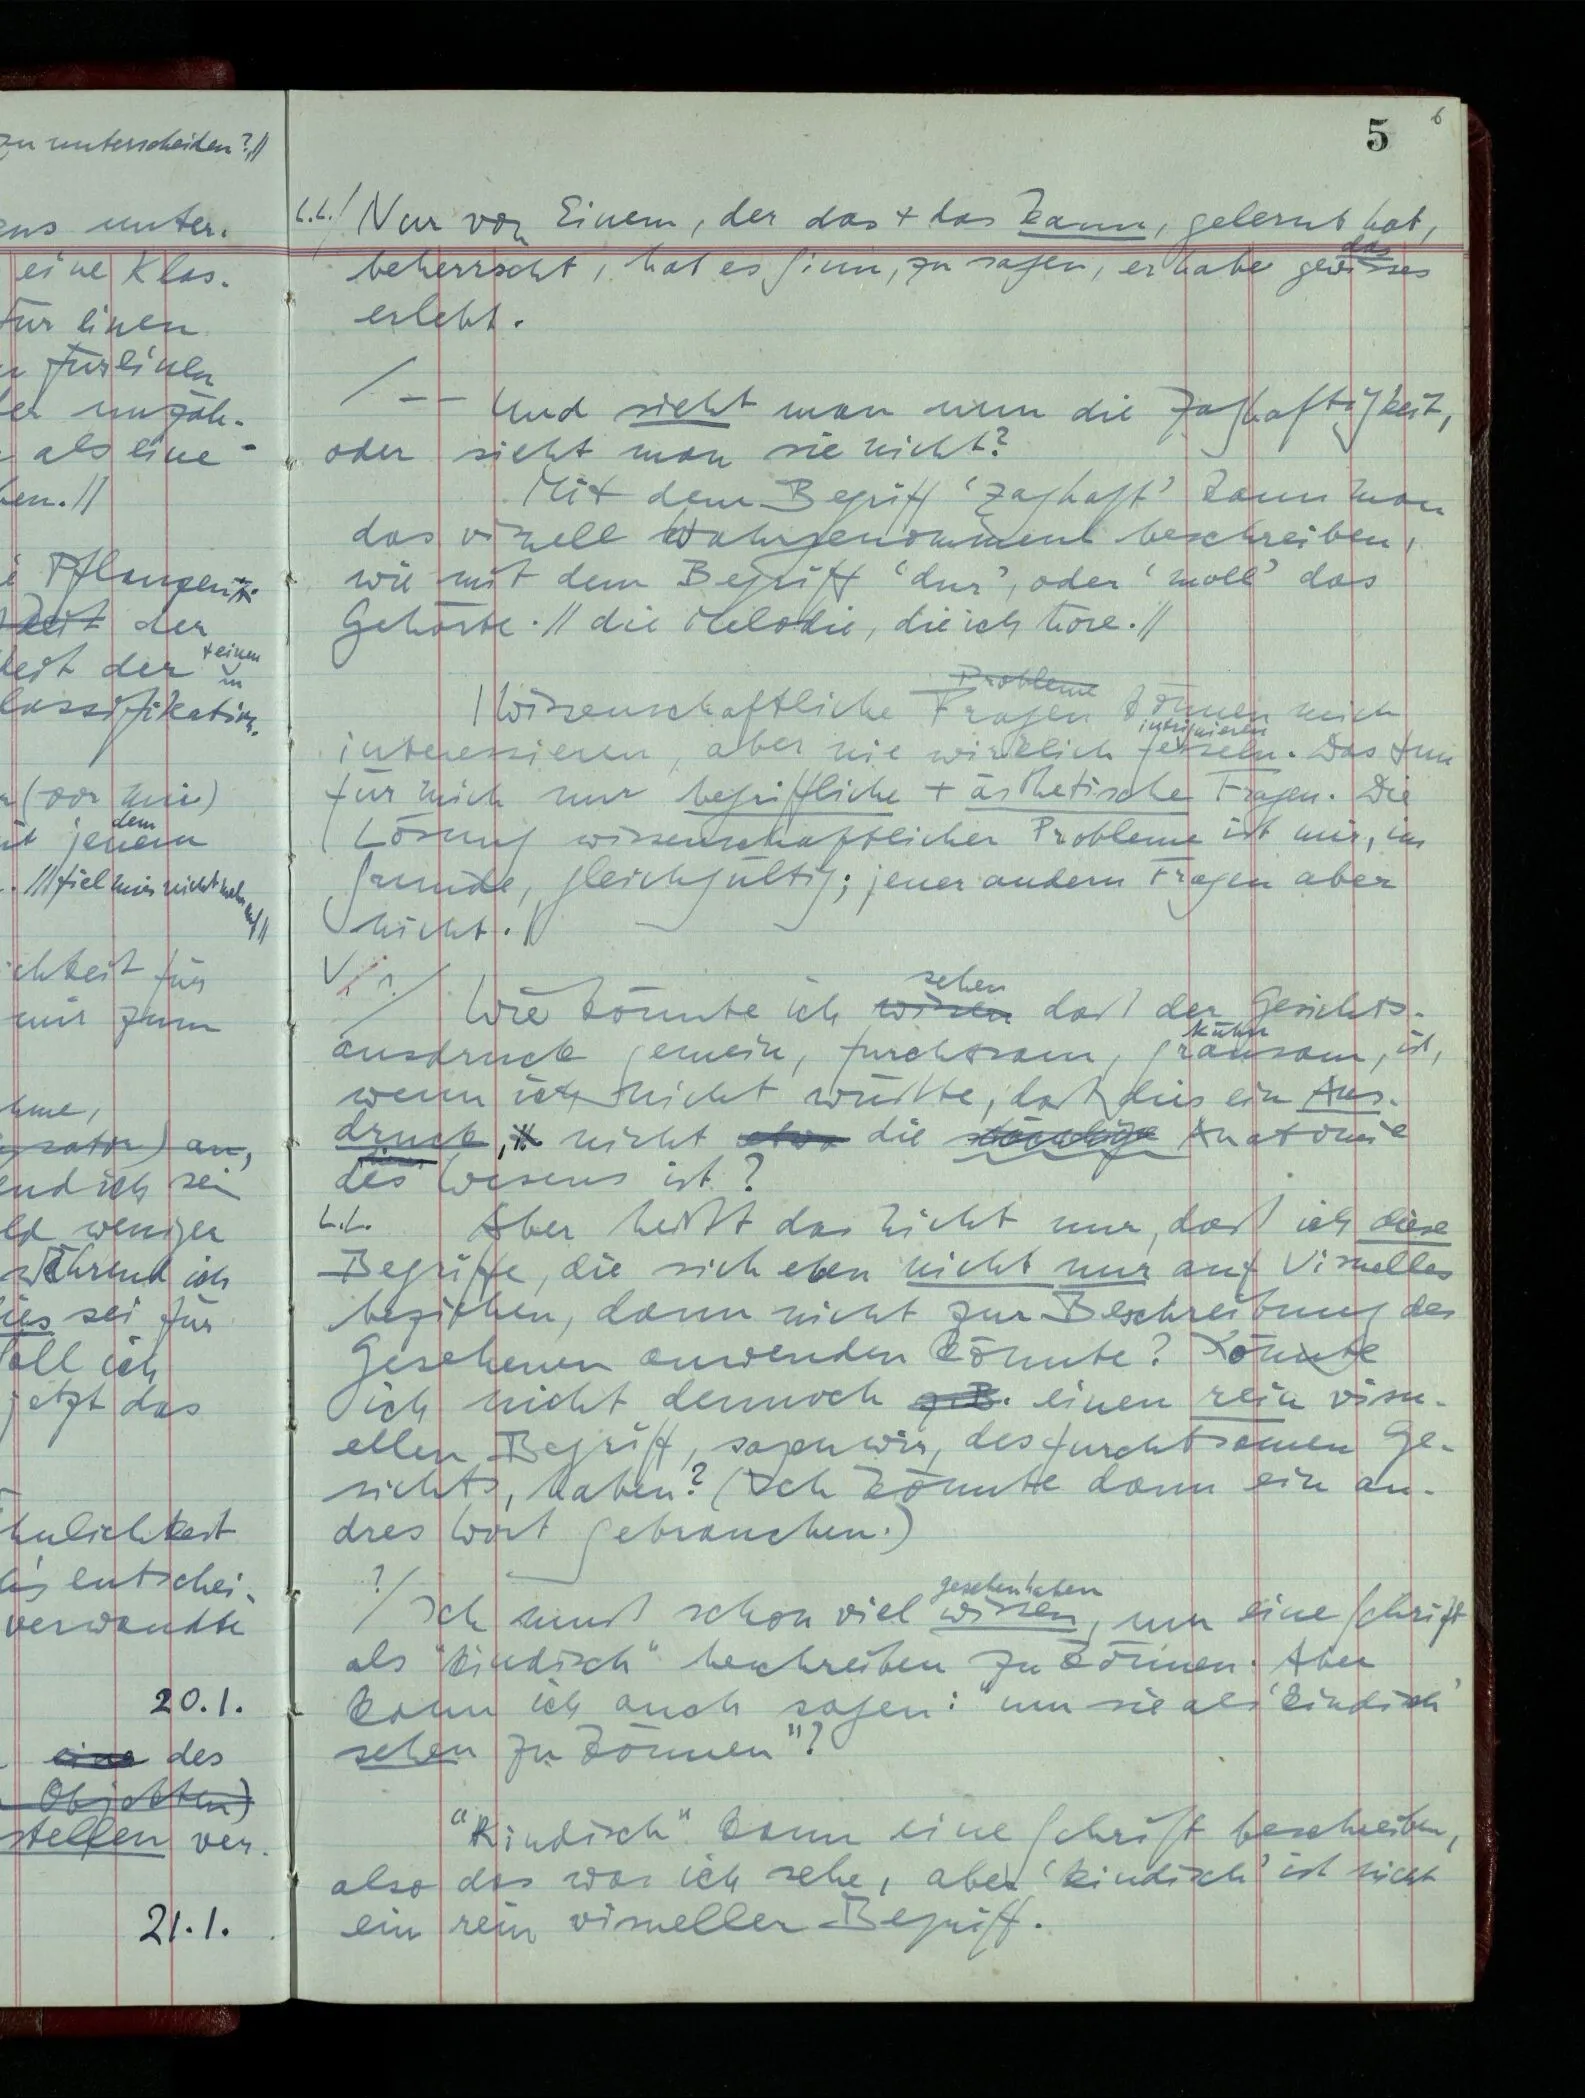 zu unterscheiden?//
ens unter-
eine Klas-
für einen
für einen
als eine
ben.//
Pflanzen
der
+ einen
der in
lassifikation.
(vor mir)
dem
mit jenem
. // fiel mir nicht mehr auf //
ichkeit für
mir zum
hme,
an,
end ich sei
weniger
während ich
dies sei für
soll ich
jetzt das
hnlichkeit
entschei-
verwandte
20.1.
eine des
Objekten)
stellen ver-
21.1.
5 6
Nur von Einem, der das + das kann, gelernt hat,
das
beherrscht, hat es Sinn, zu sagen, er habe gewisses
erlebt.
/ — — Und sieht man nun die Zaghaftigkeit,
oder sieht man sie nicht?
Mit dem Begriff ‘zaghaft’ kann man
das visuell Wahrgenommene beschreiben,
wie mit dem Begriff ‘dur’, oder ‘moll’ das
Gehörte. // die Melodie, die ich höre. //
Probleme
/ Wissenschaftliche Fragen können mich
intriguieren
interessieren, aber nie wirklich fesseln. Das tun
für mich nur begriffliche + ästhetische Fragen. Die
Lösung wissenschaftlicher Probleme ist mir, im
Grunde, gleichgültig; jener andern Fragen aber
nicht. //
sehen
/ Wie könnte ich wissen daß der Gesichts-
kühn
ausdruck gemein, furchtsam, grausam, ist,
wenn ich nicht wüßte, daß dies ein Aus-
druck, nicht etwa die ständige Anatomie
des Wesens ist?
Aber heißt das nicht nur, daß ich diese
Begriffe, die sich eben nicht nur auf Visuelles
beziehen, dann nicht zur Beschreibung des
Gesehenen anwenden könnte? Könnte
ich nicht dennoch z.B. einen rein visu-
ellen Begriff, sagen wir, des furchtsamen Ge-
sichts, haben? (Ich könnte dann ein an-
dres Wort gebrauchen.)
gesehen haben
?/ Ich muß schon viel wissen, um eine Schrift
als “kindisch” beschreiben zu können. Aber
kann ich auch sagen: “um sie als ‘kindisch’
sehen zu können”?
“Kindisch” kann eine Schrift beschreiben,
also das was ich sehe, aber ‘kindisch’ ist nicht
ein rein visueller Begriff.